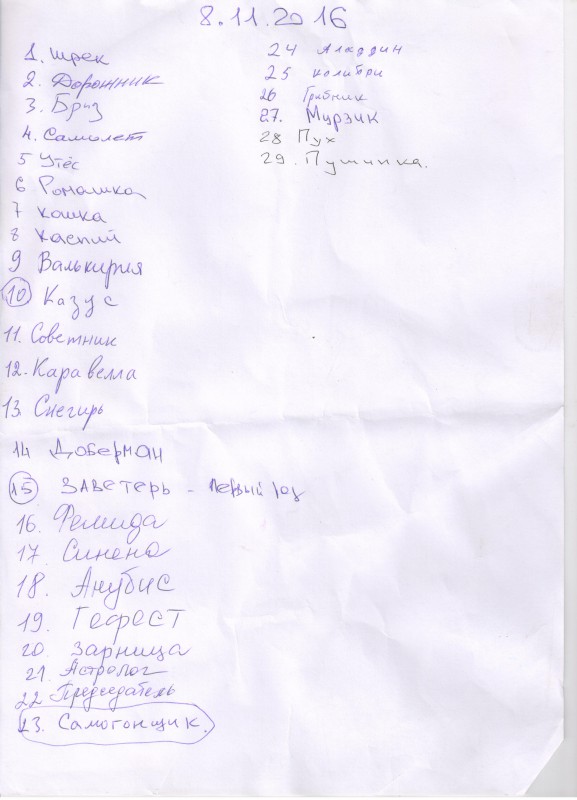 8.11.2016
1. Шрек
2. Дорожник
3. Бриз
4. Самолет
5 Утёс
6 Ромашка
7 Кошка
8 Каспий
9 Валькирия
10 Казус
11. Советник
12. Каравелла
13. Снегирь
14 Доберман
15 ЗАВЕТЕРЬ - Первый
16. Фемида
17. Синена
18. Анубис
19. Гефест
20 Зарница
21. Астролог
22 Председатель
23. Самогонщик.
24 Аладдин
25 Колибри
26 Грибник
27. Мурзик
28 Пух
29. Пушинка.